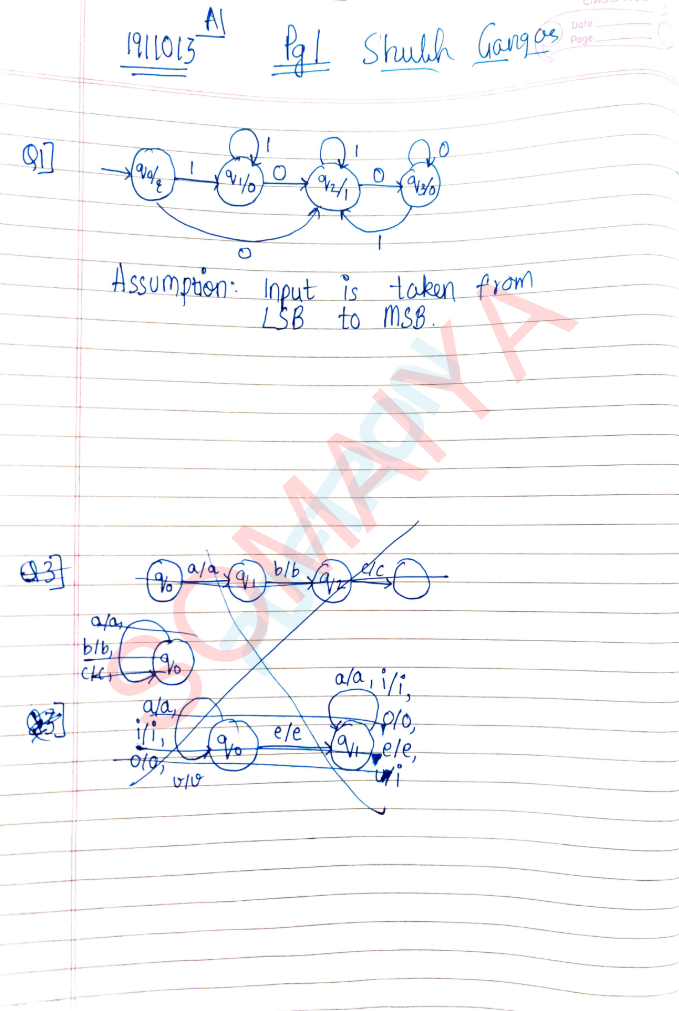 A1
1911013 Pg 1 Shubh Gangar
Date
Page
Q1]
q0/ε 1 q1/0 1 0 q2/1 1 0 q3/0 0
0 1
Assumption: Input is taken from
LSB to MSB.
SOMAIYA
Q3] q0 a/a q1 b/b q2 c/c
a/a,
b/b, q0
c/c,
a/a, i/i,
a/a, o/o,
i/i, q0 e/e q1 e/e,
o/o, u/i
u/u